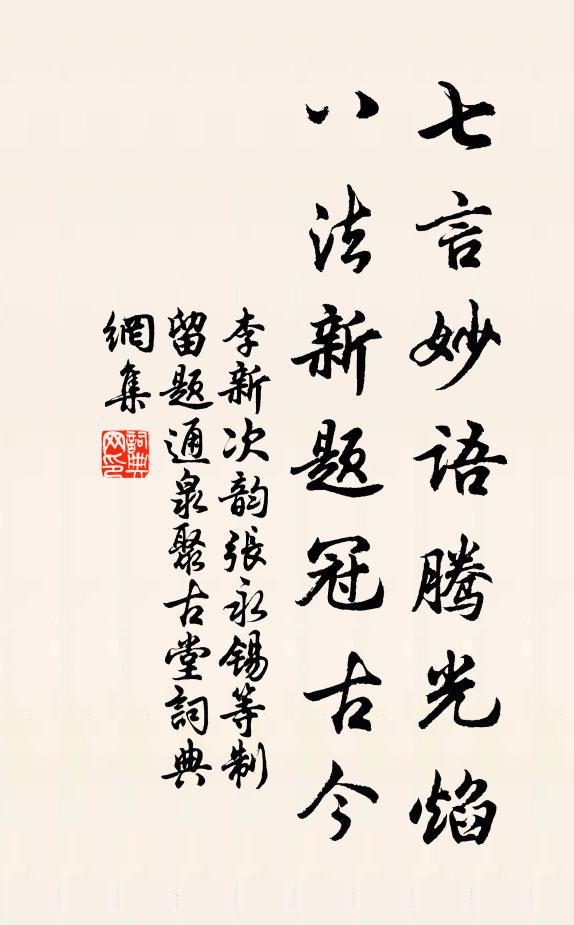 七言妙语腾光焰
八法新题冠古今
李新次韵張永锡等制
留题通泉聚古堂詞典
網集
詞典
网印